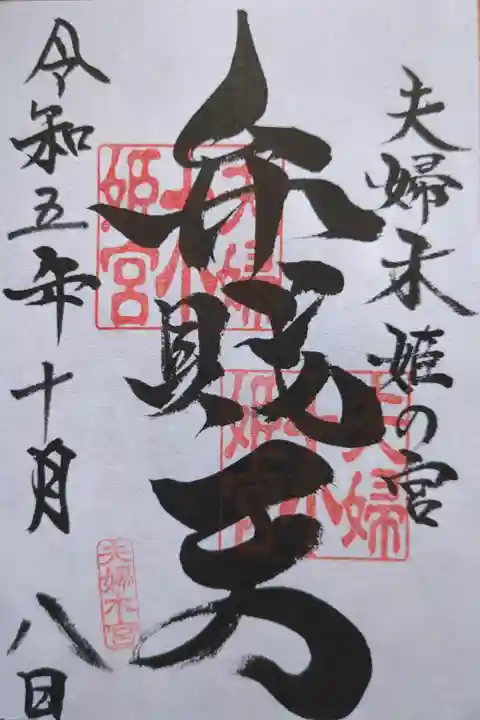 夫婦木姫の宮
弁財天
令和五年十月 八日
夫婦木姫宮
夫婦木姫宮
夫婦木宮